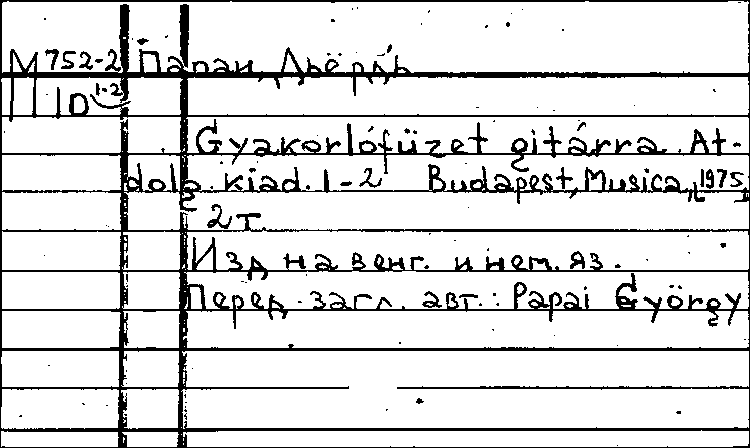 М 752-2 Папаи, Дьёрдь
П 10 1-2
Gyakorlófüzet gitárra. At-
dolg. kiad. 1-2 Budapest, Musica, [1975]
2 т.
Изд на венг. и нем. яз.
Перед загл. авт.: Papai György